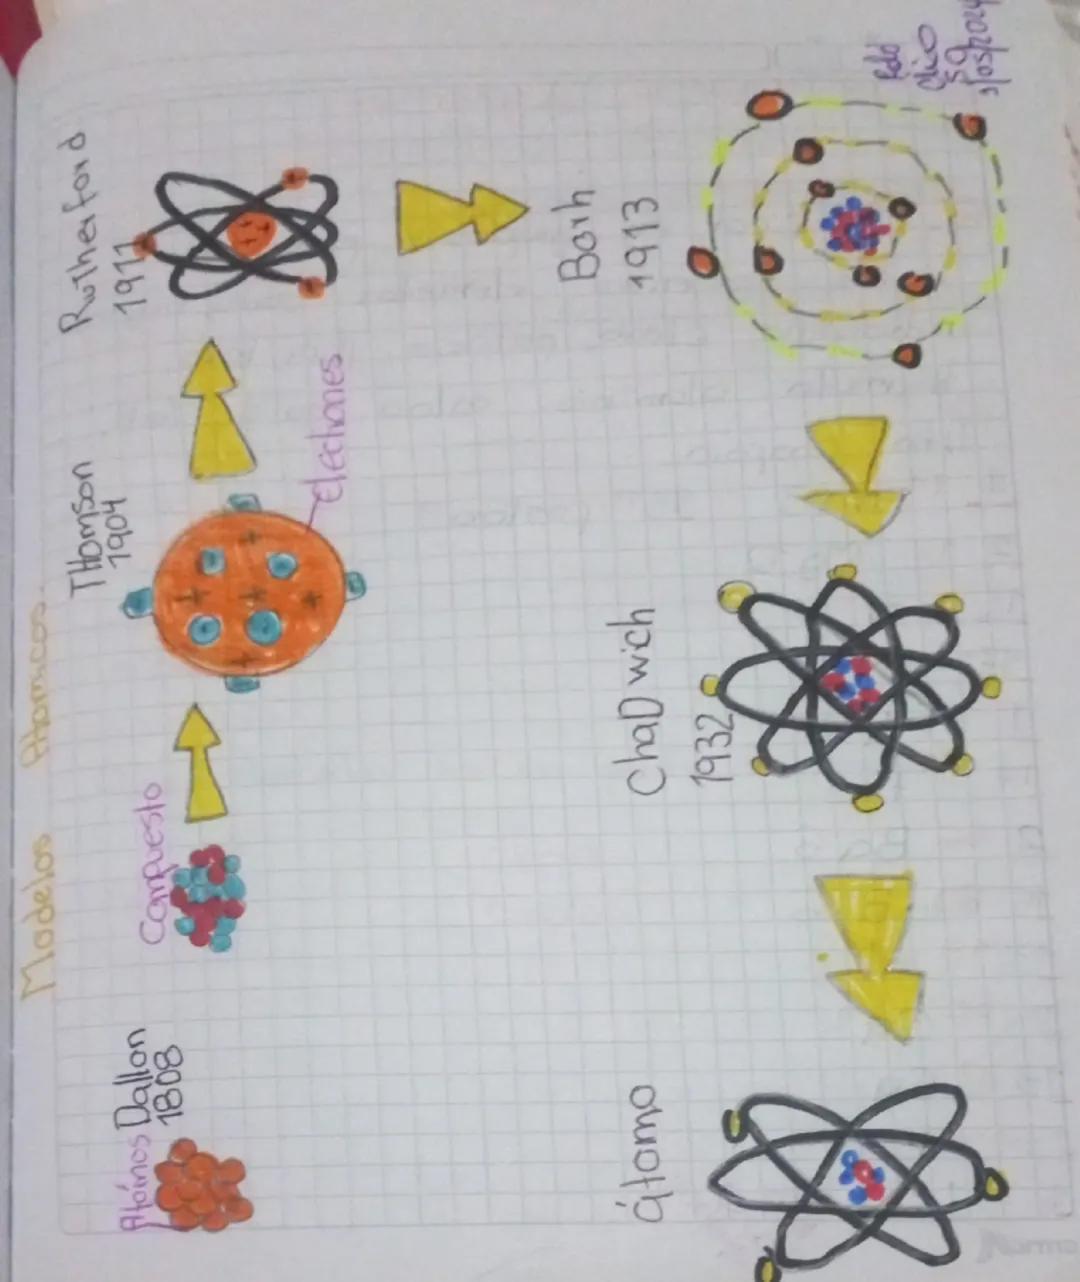 Modelos Atomicos.
Atómos
Dallon
1808
Compuesto
THomson
1904
Electrones
Rutherford
1911
Borh
1913
ChaDwich
1932
átomo
Norma